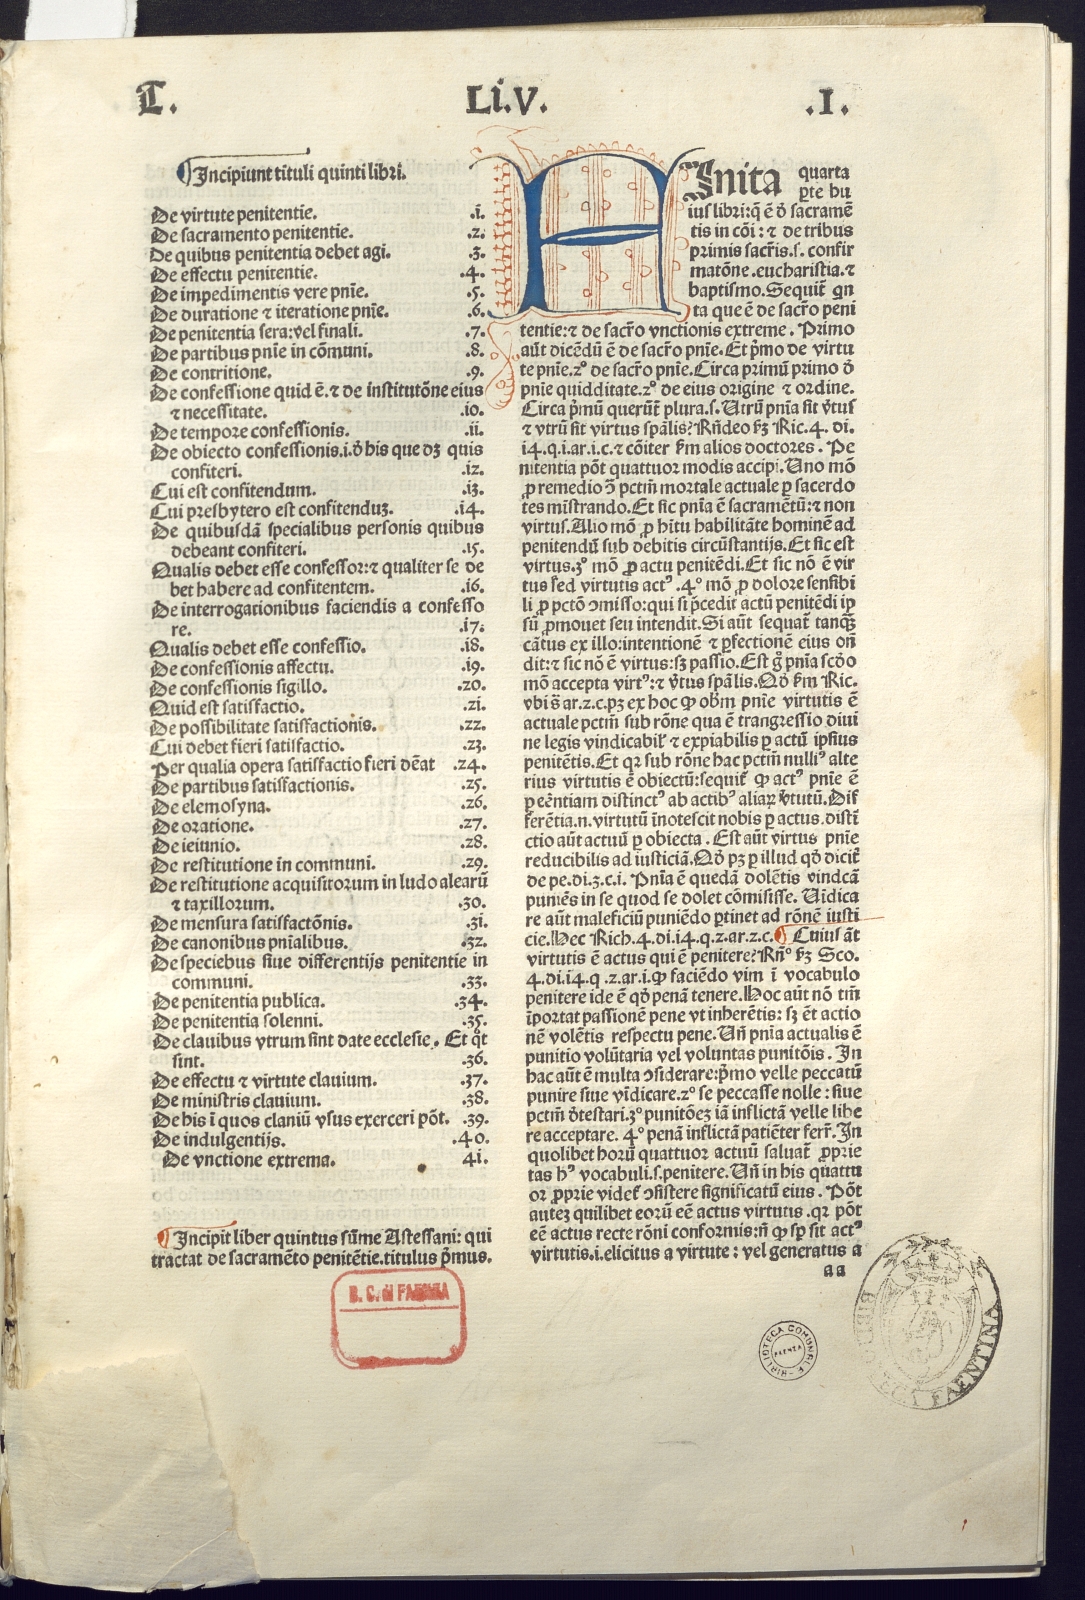 T. Li.V. .I.
¶ Incipiunt tituli quinti libri.
De virtute penitentie. .i.
De sacramento penitentie. .2.
De quibus penitentia debet agi. .3.
De effectu penitentie. .4.
De impedimentis vere pnīe. .5.
De duratione ⁊ iteratione pnīe. .6.
De penitentia sera: vel finali. .7.
De partibus pnīe in cōmuni. .8.
De contritione. .9.
De confessione quid ē. ⁊ de institutōne eius
⁊ necessitate. .io.
De tempore confessionis. .ii.
De obiecto confessionis.i.d̄ his que dꝫ quis
confiteri. .i2.
Cui est confitendum. .i3.
Cui presbytero est confitenduꝫ. .i4.
De quibusdā specialibus personis quibus
debeant confiteri. .i5.
Qualis debet esse confessor: ⁊ qualiter se de
bet habere ad confitentem. .i6.
De interrogationibus faciendis a confesso
re. .i7.
Qualis debet esse confessio. .i8.
De confessionis affectu. .i9.
De confessionis sigillo. .20.
Quid est satisfactio. .2i.
De possibilitate satisfactionis. .22.
Cui debet fieri satisfactio. .23.
Per qualia opera satisfactio fieri dēat .24.
De partibus satisfactionis. .25.
De elemosyna. .26.
De oratione. .27.
De ieiunio. .28.
De restitutione in communi. .29.
De restitutione acquisitorum in ludo alearū
⁊ taxillorum. .30.
De mensura satisfactōnis. .3i.
De canonibus pnīalibus. .32.
De speciebus siue differentijs penitentie in
communi. .33.
De penitentia publica. .34.
De penitentia solenni. .35.
De clauibus vtrum sint date ecclesie. Et qt̄
sint. .36.
De effectu ⁊ virtute clauium. .37.
De ministris clauium. .38.
De his ī quos clauiū vsus exerceri pōt. .39.
De indulgentijs. .40.
De vnctione extrema. 4i.
¶ Incipit liber quintus sūme Astessani: qui
tractat de sacramēto penitētie. titulus p̄mus.
FInita quarta
ꝑte hu
ius libri: q̄ ē d̄ sacramē
tis in cōi: ⁊ de tribus
primis sacrīs.s. confir
matōne. eucharistia. ⁊
baptismo. Sequit̄ qn
ta que ē de sacrō peni
tentie: ⁊ de sacrō vnctionis extreme. Primo
aūt dicēdū ē de sacrō pnīe. Et p̄mo de virtu
te pnīe. 2º de sacrō pnīe. Circa primū primo d̄
pnīe quidditate. 2º de eius origine ⁊ ordine.
Circa p̄mū querūt̄ plura.s. Utrū pnīa sit v̄tus
⁊ vtrū sit virtus spālis? Rn̄deo ẜm Ric.4. di.
i4.q.i.ar.i.c. ⁊ cōiter ẜm alios doctores. Pe
nitentia pōt quattuor modis accipi. Uno mō
ꝓ remedio ↄ̄ pctm̄ mortale actuale ꝑ sacerdo
tes mīstrando. Et sic pnīa ē sacramētū: ⁊ non
virtus. Alio mō ꝓ hītu habilitāte hominē ad
penitendū sub debitis circūstantijs. Et sic est
virtus. 3º mō ꝓ actu penitēdi. Et sic nō ē vir
tus sed virtutis actꝰ. 4º mō ꝓ dolore sensibi
li ꝓ pctō ↄmisso: qui si p̄cedit actū penitēdi ip
sū ꝓmouet seu intendit. Si aūt sequat̄ tanqꝫ
cātus ex illo: intentionē ⁊ ꝑfectionē eius on̄
dit: ⁊ sic nō ē virtus: sꝫ passio. Est g̊ pnīa scd̄o
mō accepta virtꝰ: ⁊ v̄tus spālis. Qd̄ ẜm Ric.
vbi s̄ ar.2.c.pꝫ ex hoc ꝙ obm̄ pnīe virtutis ē
actuale pctm̄ sub rōne qua ē trangressio diui
ne legis vindicabil̄ ⁊ expiabilis ꝑ actū ipsius
penitētis. Et qꝛ sub rōne hac pctm̄ nulliꝰ alte
rius virtutis ē obiectū: sequit̄ ꝙ actꝰ pnīe ē
ꝑ eēntiam distinctꝰ ab actibꝰ aliaꝝ v̄tutū. Dif
ferētia.n. virtutū īnotescit nobis ꝑ actus. distī
ctio aūt actuū ꝑ obiecta. Est aūt virtus pnīe
reducibilis ad iusticiā. Qd̄ pꝫ ꝑ illud qd̄ dicit̄
de pe.di.3.c.i. Pnīa ē quedā dolētis vindcā
puniēs in se quod se dolet cōmisisse. Uidica
re aūt maleficiū puniēdo ꝑtinet ad rōnē iusti
cie. Hec Rich.4.di.i4.q.2.ar.2.c. ¶ Cuius āt
virtutis ē actus qui ē penitere? Rn̄º ẜm Sco.
4.di.i4.q.2.ar.i.ꝙ faciēdo vim ī vocabulo
penitere ide ē qd̄ penā tenere. Hoc aūt nō tm̄
īportat passionē pene vt inherētis: sꝫ ēt actio
nē volētis respectu pene. Un̄ pnīa actualis ē
punitio volūtaria vel voluntas punitōis. In
hac aūt ē multa ↄsiderare: p̄mo velle peccatū
punire siue vīdicare. 2º se peccasse nolle: siue
pctm̄ d̄testari. 3º punitōeꝫ iā inflictā velle libe
re acceptare. 4º penā inflictā patiēter ferr̄. In
quolibet horū quattuor actuū saluat̄ ꝓprie
tas hꝰ vocabuli.s. penitere. Un̄ in his quattu
or ꝓprie videt̄ ↄsistere significatū eius. Pōt
auteꝫ quilibet eorū eē actus virtutis. qꝛ pōt
eē actus recte rōni conformis: n̄ ꝙ sꝑ sit actꝰ
virtutis.i. elicitus a virtute: vel generatus a
aa
B. C. di FAENZA
BIBLIOTECA COMUNALE
FAENZA
BIBLIOTECA FAENTINA